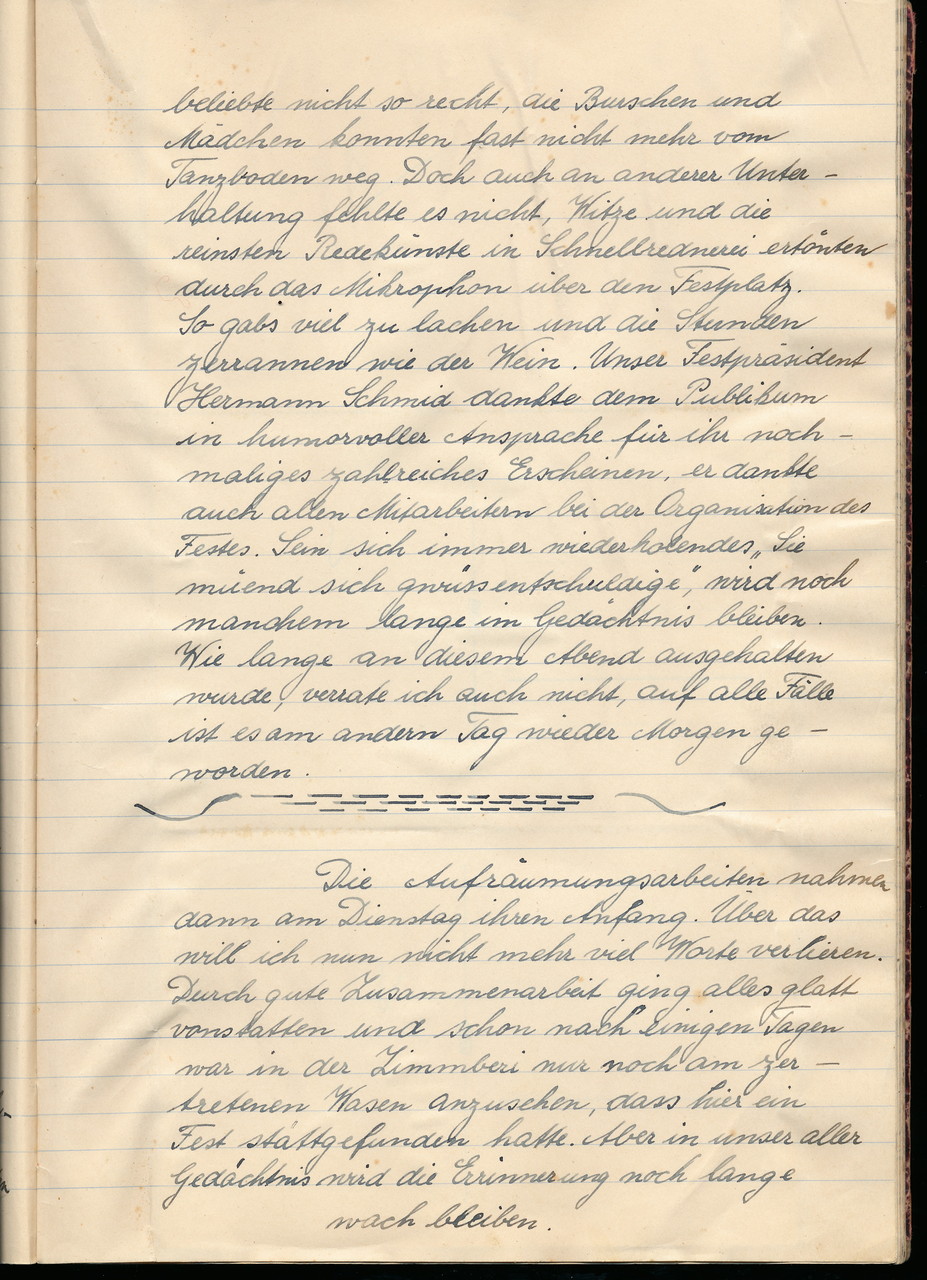 beliebte nicht so recht, die Burschen und
Mädchen konnten fast nicht mehr vom
Tanzboden weg. Doch auch an anderer Unter-
haltung fehlte es nicht, Witze und die
reinsten Redekünste in Schnellrednerei ertönten
durch das Mikrophon über den Festplatz.
So gabs viel zu lachen und die Stunden
zerrannen wie der Wein. Unser Festpräsident
Hermann Schmid dankte dem Publikum
in humorvoller Ansprache für ihr noch-
maliges zahlreiches Erscheinen, er dankte
auch allen Mitarbeitern bei der Organisation des
Festes. Sein sich immer wiederholendes „Sie
müend sich gwüss entschuldige", wird noch
manchem lange im Gedächtnis bleiben.
Wie lange an diesem Abend ausgehalten
wurde, verrate ich auch nicht, auf alle Fälle
ist es am andern Tag wieder Morgen ge-
worden.
Die Aufräumungsarbeiten nahmen
dann am Dienstag ihren Anfang. Über das
will ich nun nicht mehr viel Worte verlieren.
Durch gute Zusammenarbeit ging alles glatt
vonstatten und schon nach einigen Tagen
war in der Zimmberi nur noch am zer-
tretenen Wasen anzusehen, dass hier ein
Fest stattgefunden hatte. Aber in unser aller
Gedächtnis wird die Errinnerung noch lange
wach bleiben.